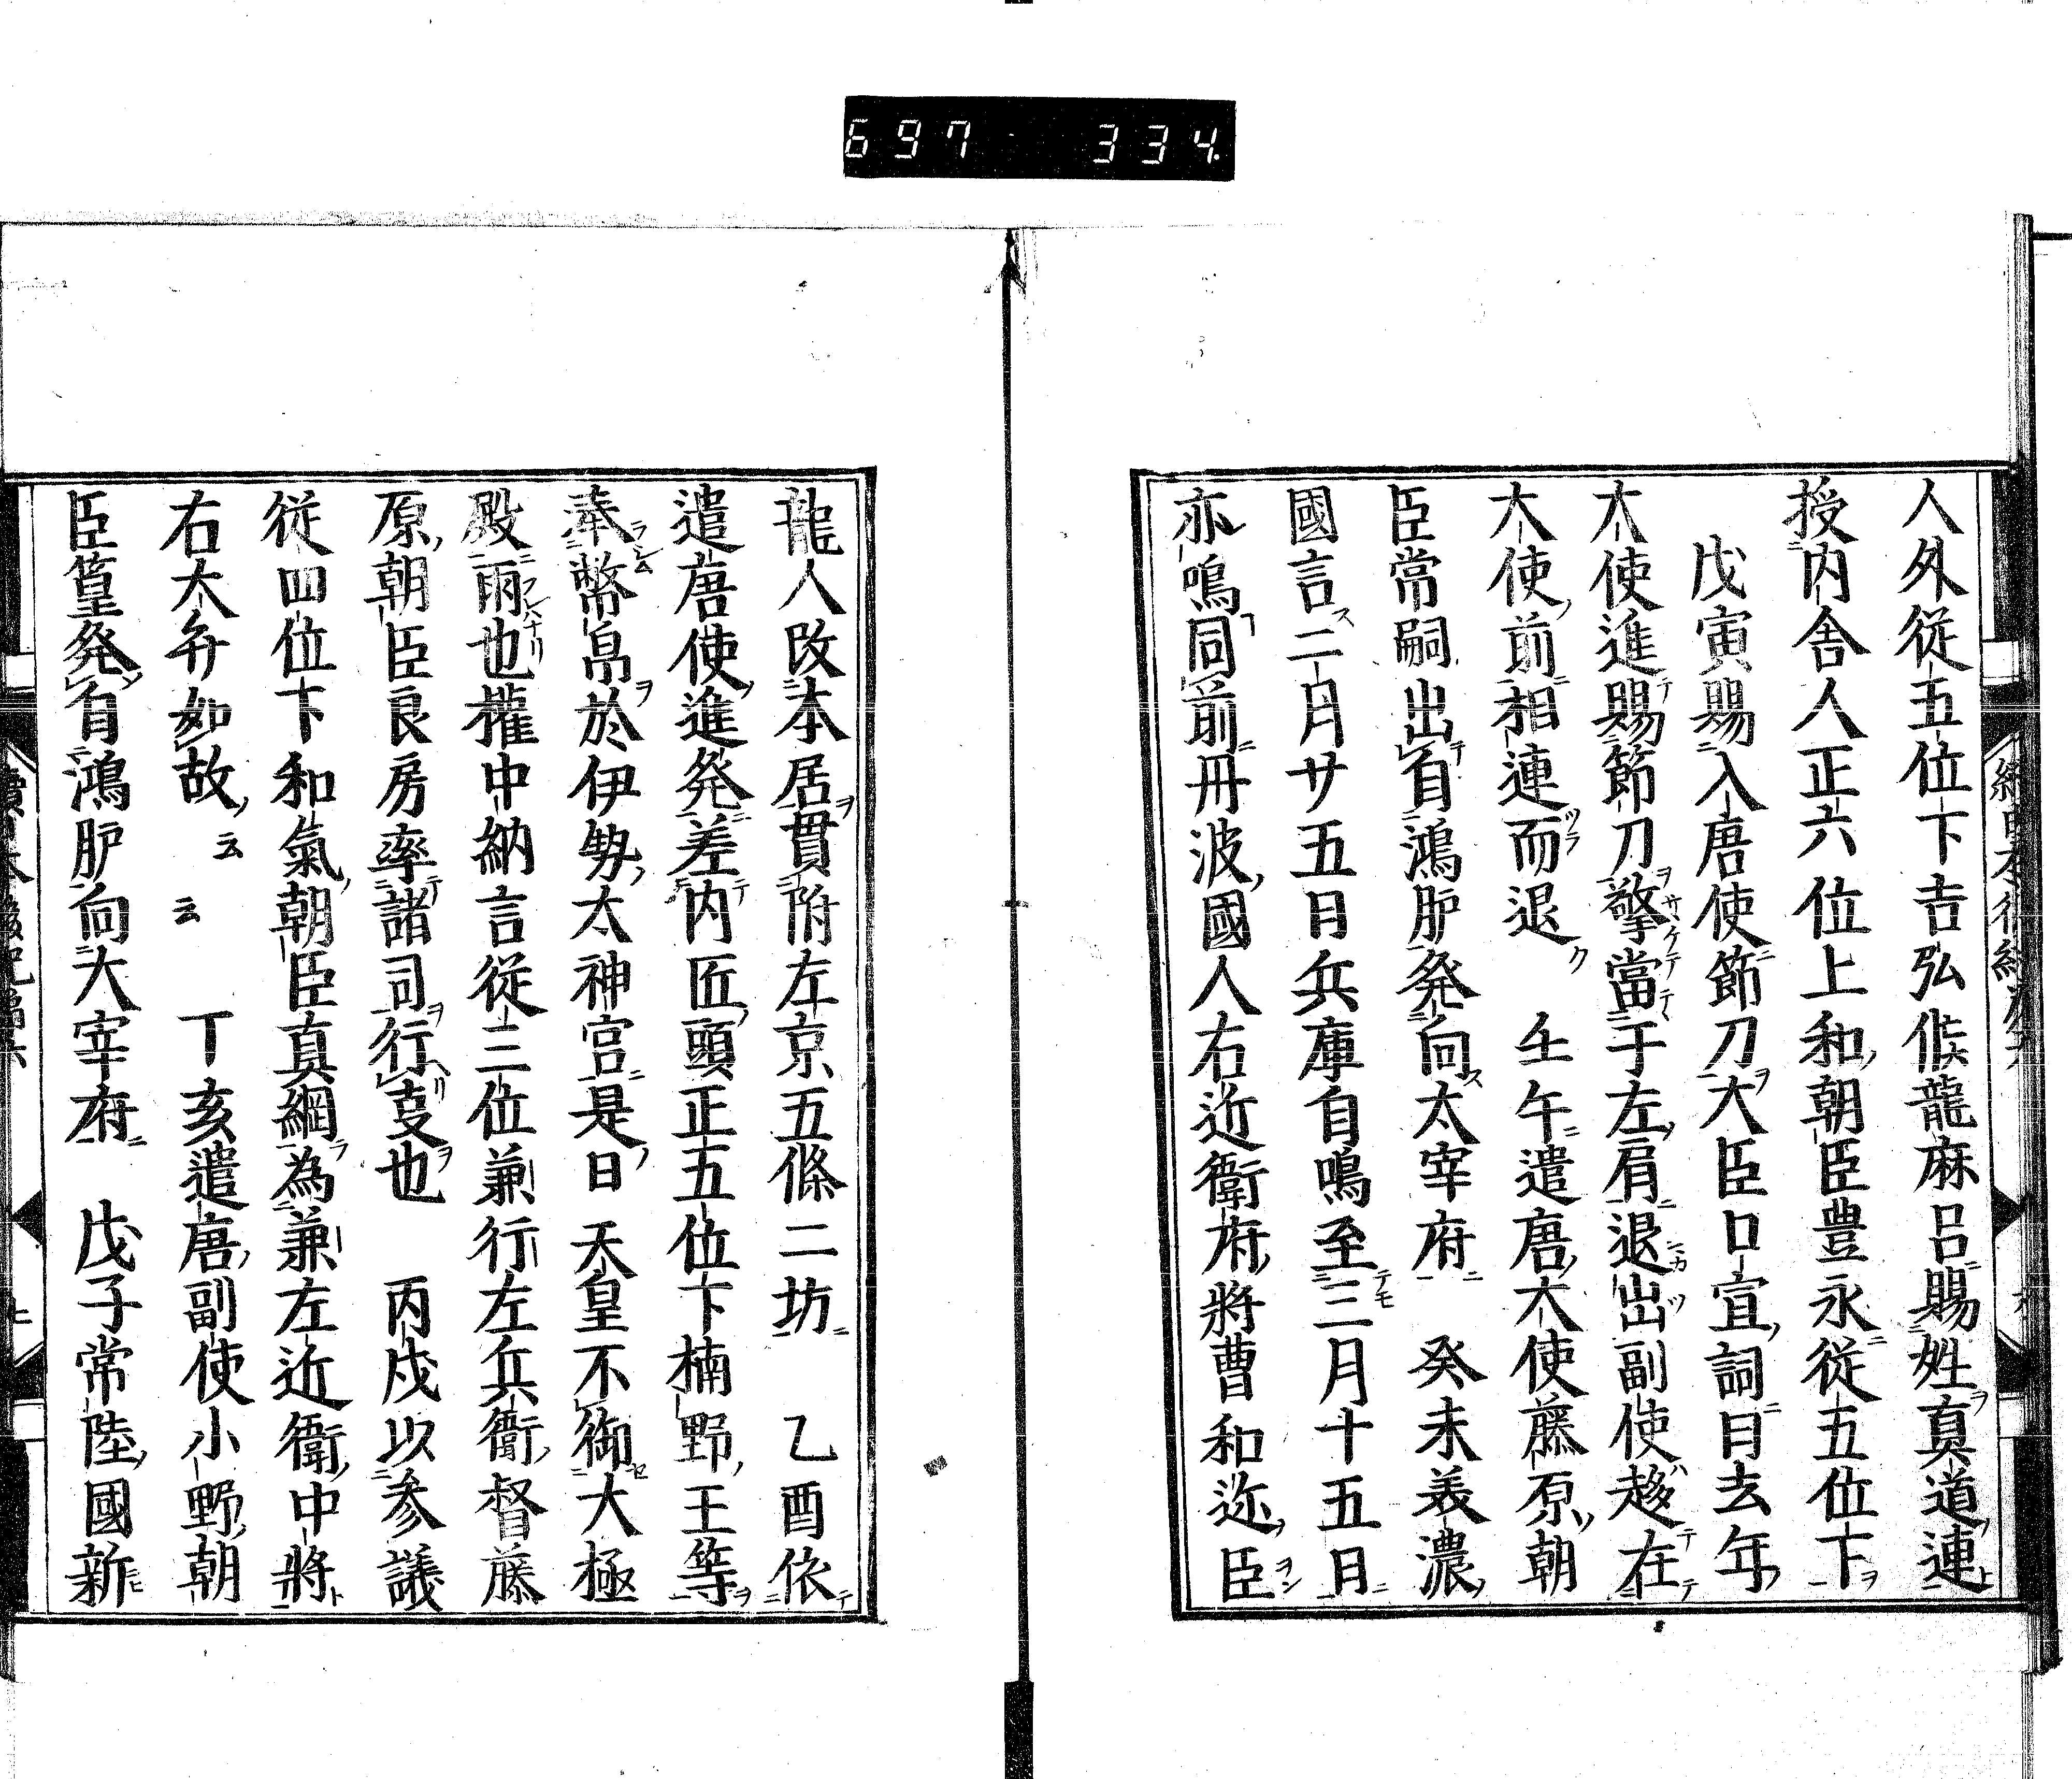 697 334
人外従五位下吉弘候龍麻呂賜姓真道連
授内舎人正六位上和朝臣豊永従五位下
戊寅賜入唐使節刀大臣口宣詞曰去年
大使進賜節刀擎當于左肩退出副使趍在
大使前相連而退 壬午遣唐大使藤原朝
臣常嗣出自鴻胪発向太宰府 癸未美濃
國言二月廿五日兵庫自鳴至三月十五日
亦鳴同前丹波國人右近衛府将曹和迩臣
龍人改本居貫附左京五條二坊 乙酉依
遣唐使進発差内匠頭正五位下楠野王等
奉幣帛於伊勢太神宮是日天皇不御大極
殿雨也權中納言従三位兼行左兵衛督藤
原朝臣良房率諸司行㕝也 丙戌以参議
従四位下和氣朝臣真綱為兼左近衛中将
右大弁如故云云 丁亥遣唐副使小野朝
臣篁発自鴻胪向大宰府 戊子常陸國新